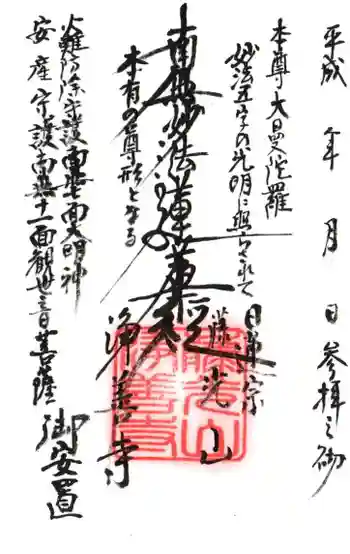 平成 年 月 日 参拝之砌
本尊大曼陀羅
妙法五字の光明に照らされて
日蓮宗
藤光山
南無妙法蓮華経
本有の尊形となる
浄善寺
火難防除守護南無七面大明神
安産守護南無十一面観世音菩薩
御安置